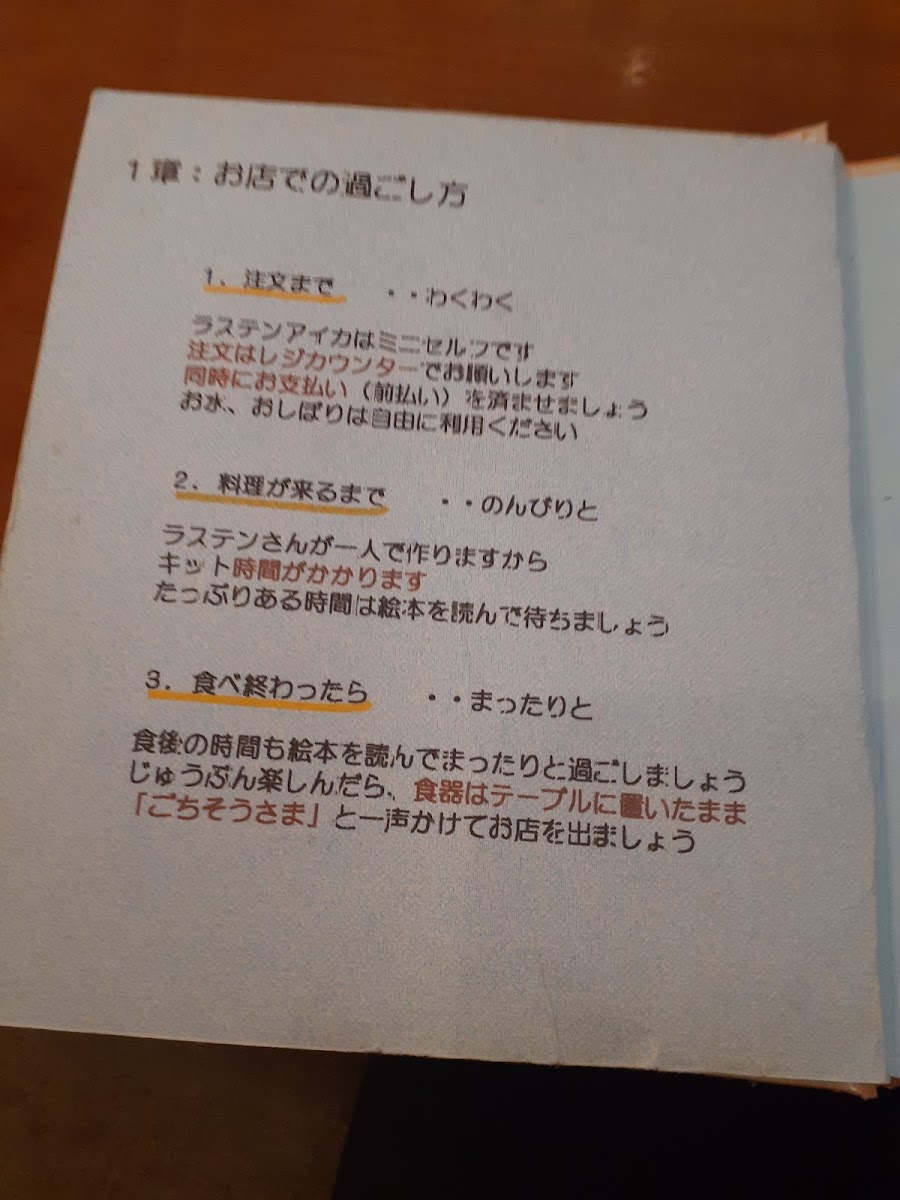 1章:お店での過ごし方
1. 注文まで ・・わくわく
ラステンアイカはミニセルフです
注文はレジカウンターでお願いします
同時にお支払い(前払い)を済ませましょう
お水、おしぼりは自由に利用ください
2. 料理が来るまで ・・のんびりと
ラステンさんが一人で作りますから
キット時間がかかります
たっぷりある時間は絵本を読んで待ちましょう
3. 食べ終わったら ・・まったりと
食後の時間も絵本を読んでまったりと過ごしましょう
じゅうぶん楽しんだら、食器はテーブルに置いたまま
「ごちそうさま」と一声かけてお店を出ましょう